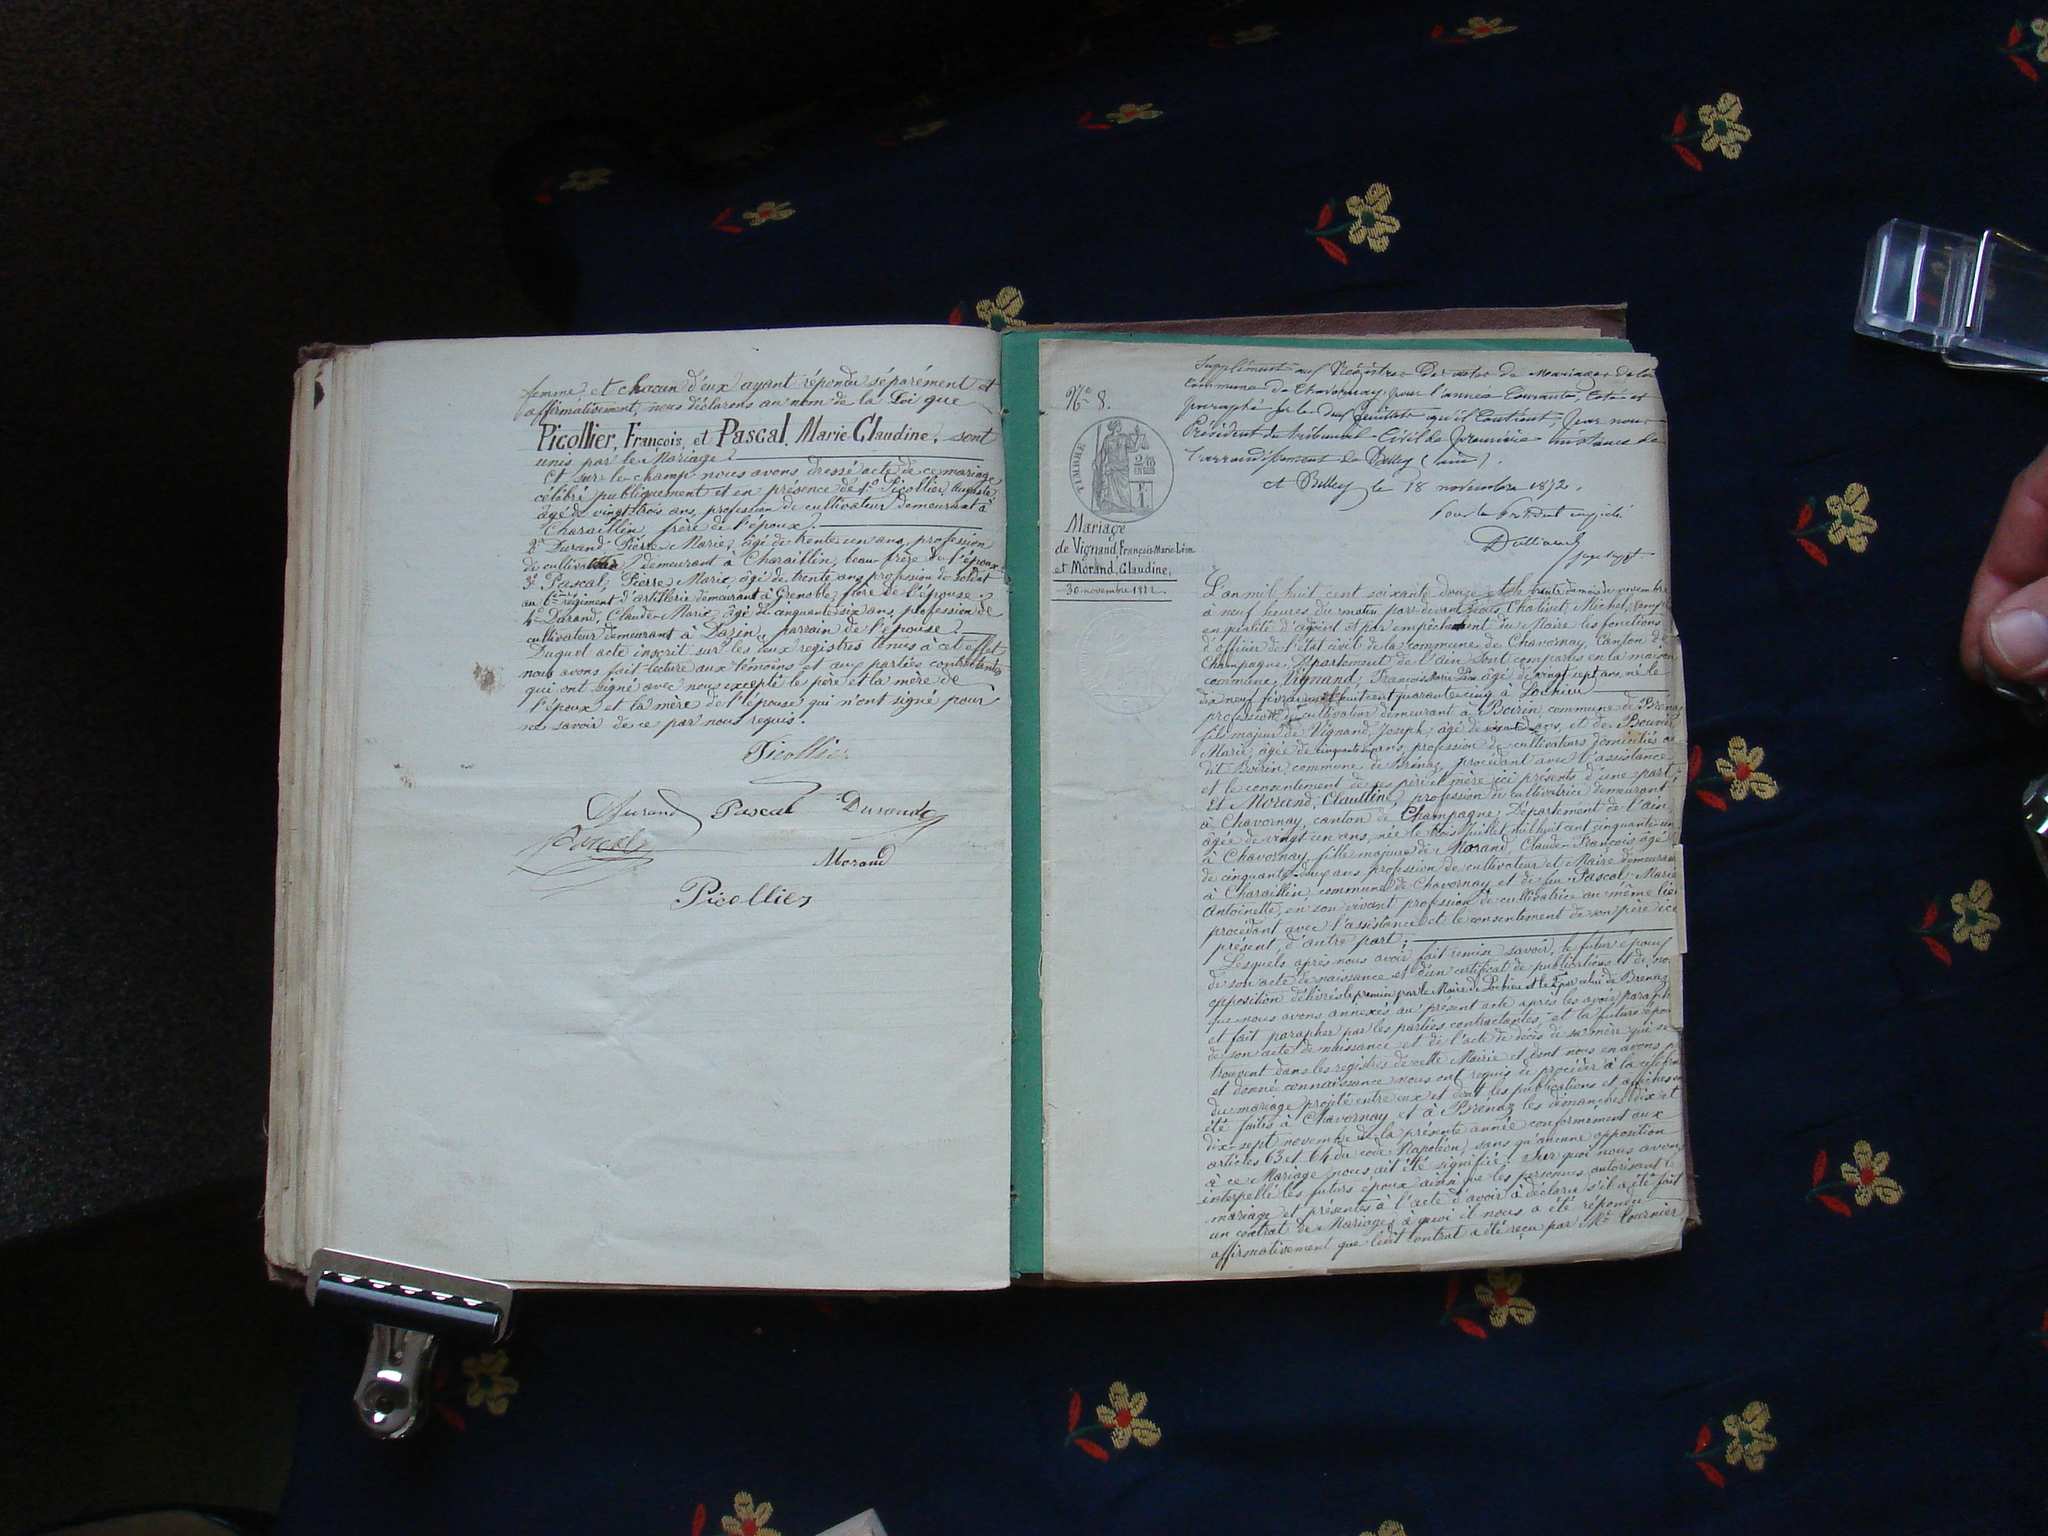 femme, et chacun d'eux ayant répondu séparément et
affirmativement, nous déclarons au nom de la Loi que
Picollier, François, et Pascal, Marie Claudine, sont
unis par le Mariage.
Et sur-le-champ nous avons dressé acte de ce mariage
célébré publiquement et en présence de 1º Picollier, Auguste
âgé de vingt trois ans, profession de cultivateur demeurant à
Charaillin, frère de l'époux.
2º Durand Pierre Marie, âgé de trente un ans, profession
de cultivateur, demeurant à Charaillin, beau-frère de l'époux
3º Pascal, Pierre, Marie, âgé de trente ans, profession de soldat
au 6ème régiment d'artillerie demeurant à Grenoble, frère de l'épouse.
4º Durand, Claude-Marie, âgé de cinquante-six ans, profession de
cultivateur demeurant à Dazin, parrain de l'épouse.
Duquel acte inscrit sur les deux registres tenus à cet effet
nous avons fait lecture aux témoins et aux parties contractantes
qui ont signé avec nous excepté le père et la mère de
l'époux et la mère de l'épouse qui n'ont signé pour
ne savoir de ce par nous requis.
Picollier
Durand Pascal Durand
Pascal
Morand
Picollier
Supplément aux Régistres des actes de Mariages de la
commune de Chavornay, pour l'année Courante, Coté et
paraphé sur les deux feuillets qu'il Contient, par nous
Président du tribunal Civil de première instance de
l'arrondissement de Belley (ain).
A Belley le 18 novembre 1872.
Pour le Président empêché
juge suppt
Nº 8.
TIMBRE
Mariage
de Vignand, François-Marie-Léon
et Morand, Claudine,
30 novembre 1872.
L'an mil huit cent soixante douze et le trente du mois de novembre
à neuf heures du matin par devant nous, Cholivet, Michel,
en qualité d'adjoint et par empêchement du Maire les fonctions
d'officier de l'état civil de la commune de Chavornay, Canton de
Champagne, Département de l'ain sont comparus en la maison
commune, Vignand, François Marie Léon âgé de vingt sept ans, né le
dix neuf février mil huit cent quarante cinq à Lochieu
profession de cultivateur demeurant à Boirin, commune de Brénaz
fils majeur de Vignand, Joseph, âgé de ans, et de Bouvier
Marie, âgée de cinquante ans, profession de cultivateurs domiciliés au
dit Boirin, commune de Brénaz, procédant avec l'assistance
et le consentement de ses père et mère ici présents d'une part.
Et Morand, Claudine, profession de cultivatrice demeurant
à Chavornay, canton de Champagne, Département de l'ain
âgée de vingt un ans, née le trois juillet mil huit cent cinquante-un
à Chavornay, fille majeure de Morand, Claude-François âgé
de cinquante-deux ans profession de cultivateur et Maire demeurant
à Charaillin, commune de Chavornay et de feu Pascal Marie
Antoinette, en son vivant profession de cultivatrice au même lieu
procédant avec l'assistance et le consentement de son père ici
présent d'autre part;
Lesquels après nous avoir fait remise savoir, le futur époux
de son acte de naissance et d'un certificat de publications et de non
opposition délivrés le premier par le Maire de Lochieu et le 2e par celui de Brénaz
que nous avons annexés au présent acte après les avoir paraphé
et fait parapher par les parties contractantes, et la future épouse
de son acte de naissance et de l'acte de décès de sa mère qui se
trouvent dans les registres de cette Mairie et dont nous en avons
et donné connaissance nous ont requis de procéder à la célébration
du mariage projeté entre eux et dont les publications et affiches ont
été faites à Chavornay et à Brénaz les dimanches dix et
dix-sept novembre de la présente année conformément aux
articles 63 et 64 du code Napoléon, sans qu'aucune opposition
à ce Mariage nous ait été signifié. Sur quoi nous avons
interpellé les futurs époux ainsi que les personnes autorisant le
mariage et présentes à l'acte d'avoir à déclarer s'il a été fait
un contrat de Mariage, à quoi il nous a été répondu
affirmativement que ledit contrat a été reçu par Me Fournier